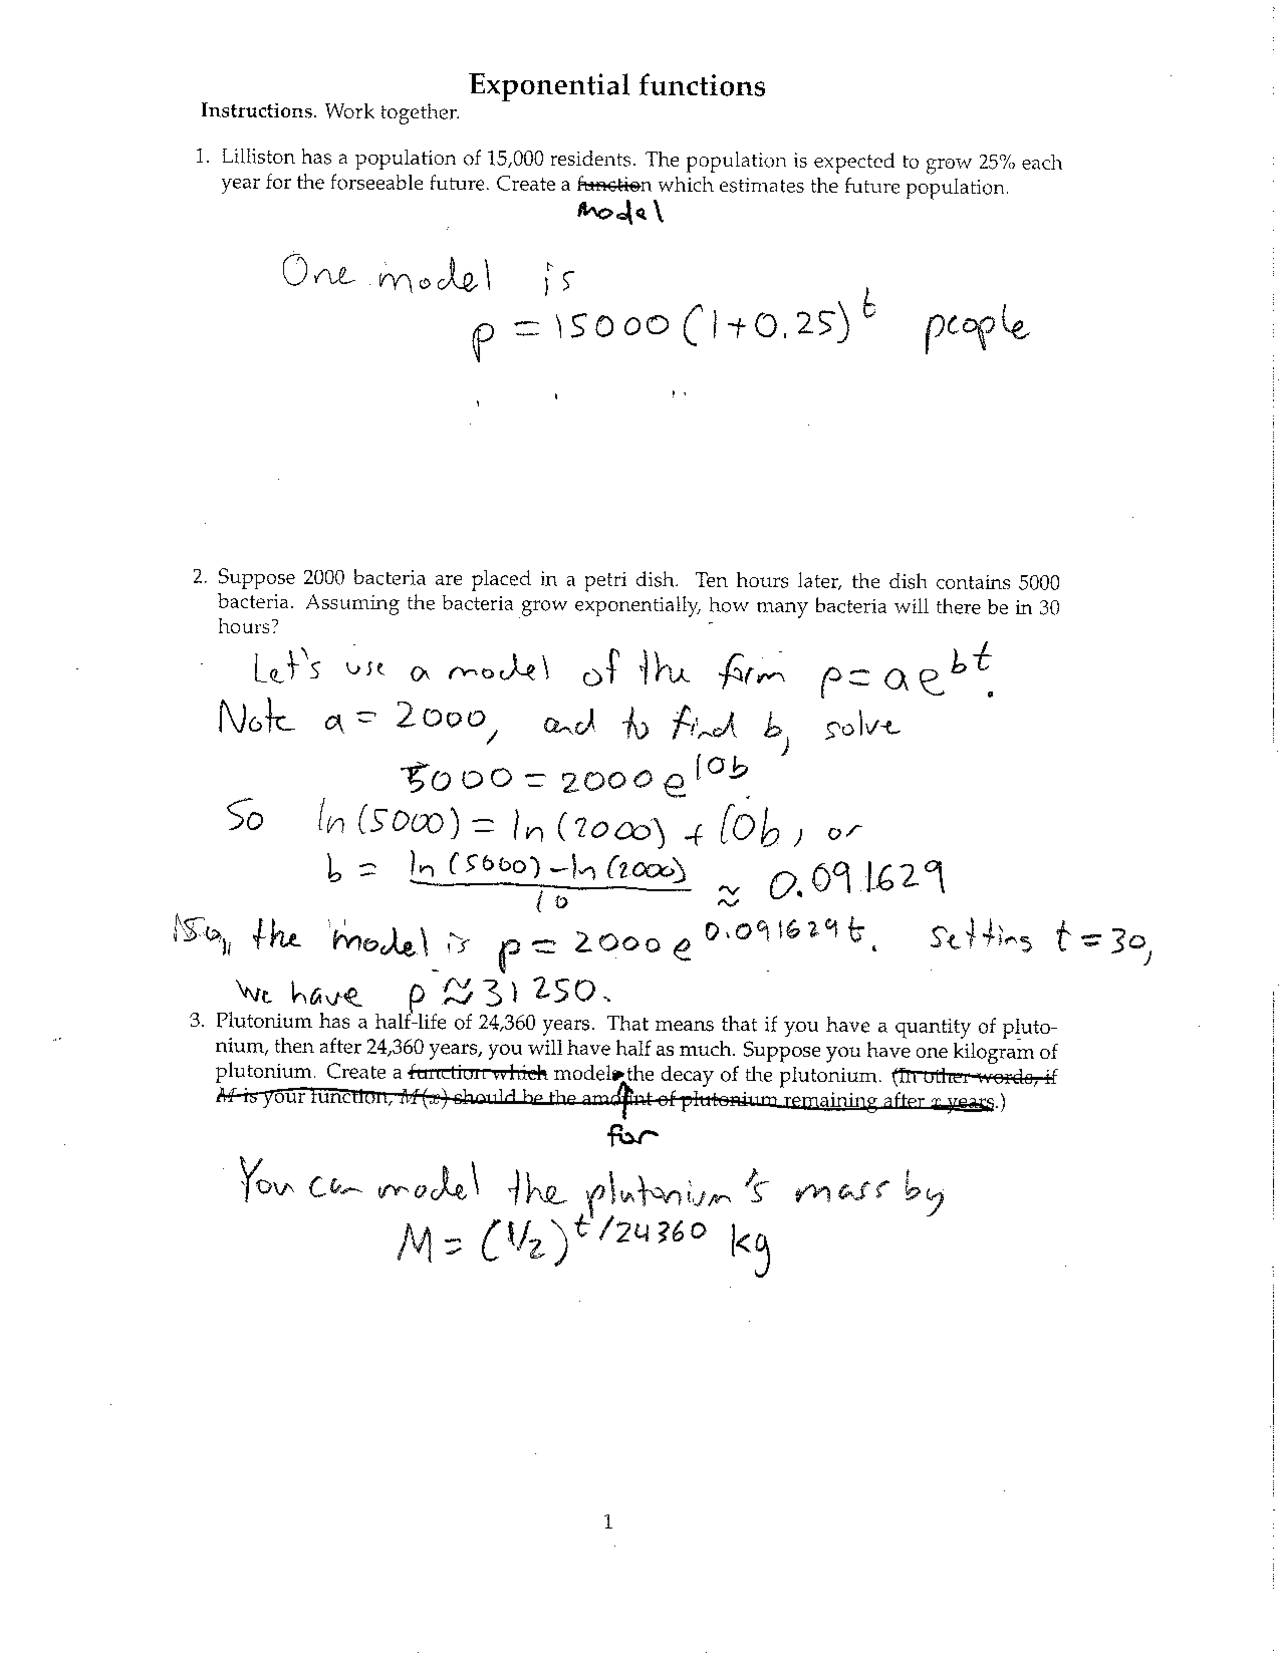 Exponential functions
Instructions. Work together.
1. Lilliston has a population of 15,000 residents. The population is expected to grow 25% each
year for the forseeable future. Create a function which estimates the future population.
model
One model is
p = 15000 (1+0.25)^t people
2. Suppose 2000 bacteria are placed in a petri dish. Ten hours later, the dish contains 5000
bacteria. Assuming the bacteria grow exponentially, how many bacteria will there be in 30
hours?
Let's use a model of the form p = ae^{bt}.
Note a = 2000, and to find b, solve
5000 = 2000e^{10b}
So ln(5000) = ln(2000) + 10b, or
b = \frac{ln(5000) - ln(2000)}{10} ≈ 0.091629
So, the model is p = 2000e^{0.091629t}. Setting t = 30,
we have p ≈ 31250.
3. Plutonium has a half-life of 24,360 years. That means that if you have a quantity of pluto-
nium, then after 24,360 years, you will have half as much. Suppose you have one kilogram of
plutonium. Create a function which model the decay of the plutonium. (In other words, if
M is your function, M(x) should be the amount of plutonium remaining after x years.)
for
You can model the plutonium's mass by
M = (1/2)^{t/24360} kg
1